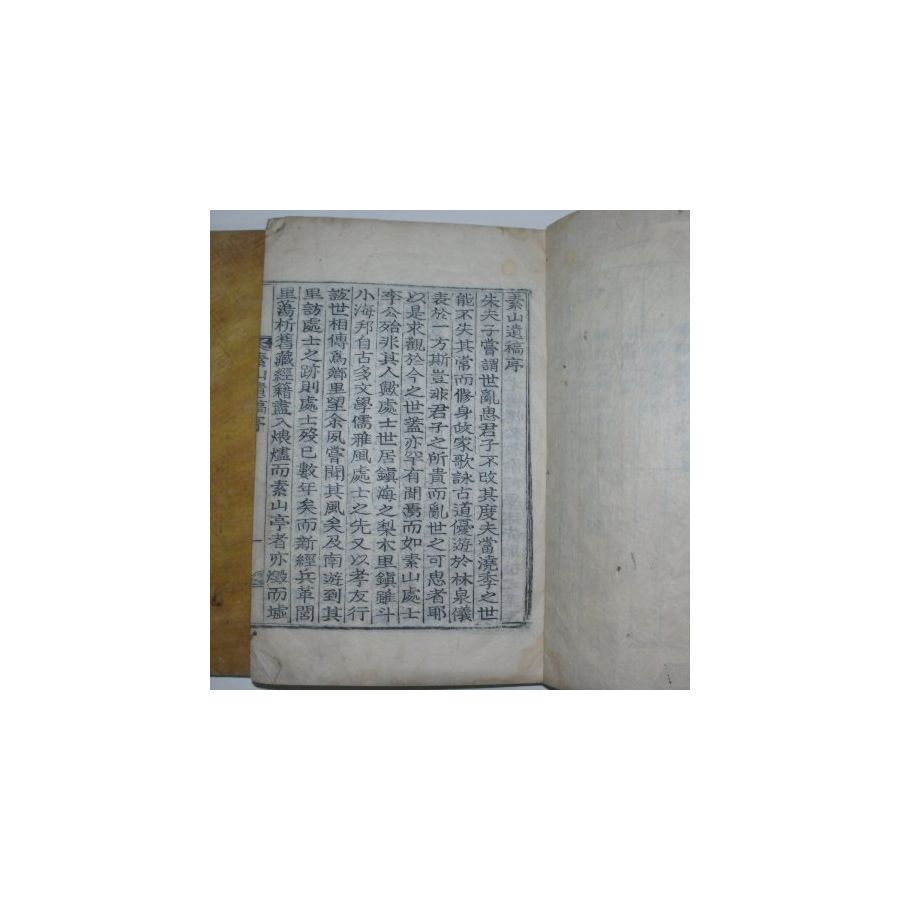 素山遺稿序
朱夫子嘗謂世亂愚君子不改其度夫當澆季之世
能不失其常而修身故家歌詠古道優遊於林泉儀
表於一方斯豈非君子之所貴而亂世之可思者耶
以是求觀於今之世蓋亦罕有聞焉而如素山處士
李公殆非其人歟處士世居鎮海之梨木里鎮雖斗
小海邦自古多文學儒雅風處士之先又以孝友行
誼世相傳爲鄉里望余夙嘗聞其風矣及南遊到其
里訪處士之跡則處士歿已數年矣而新經兵革閭
里蕩析舊藏經籍盡入煨燼而素山亭者亦燬而墟
素山遺稿序
一